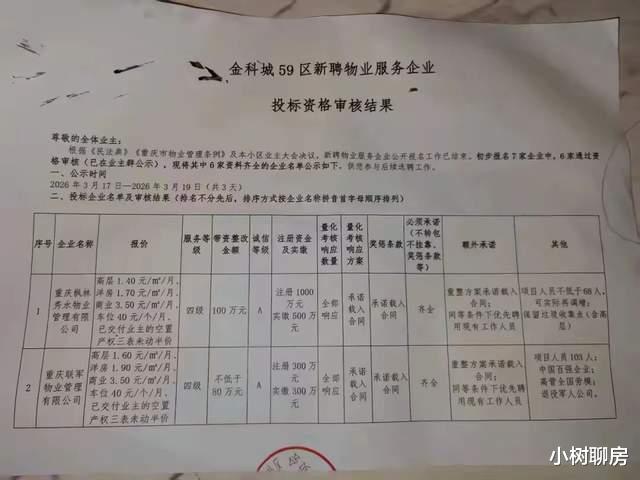 金科城 59 区新聘物业服务企业
投标资格审核结果
尊敬的全体业主：
根据《民法典》《重庆市物业管理条例》及本小区业主大会决议，新聘物业服务企业公开报名工作已结束。初步报名 7 家企业中，6 家通过资
格审核（已在业主群公示），现将其中 6 家资料齐全的企业名单公示如下，供您参与后续选聘工作。
一、公示时间
2026 年 3 月 17 日—2026 年 3 月 19 日（共 3 天）
二、投标企业名单及审核结果（排名不分先后，排序方式按企业名称拼音首字母顺序排列）
序号 企业名称 报价 服务等级 带资整改金额 诚信等级 注册资金及实缴 量化考核响应数量 量化考核响应方案 奖惩条款 必须承诺（不转包不挂靠、奖惩条款等） 额外承诺 其他
1 重庆枫林秀水物业管理有限公司 高层 1.40 元/㎡/月、洋房 1.70 元/㎡/月、商业 3.50 元/㎡/月、车位 40 元/个/月、已交付业主的空置产权三表未动半价 四级 100 万元 A 注册 1000 万元 实缴 500 万元 全部响应 承诺载入合同 承诺载入合同 齐全 重整方案承诺载入合同；同等条件下优先聘用现有工作人员 项目人员不低于 68 人，可实际再调增；保留垃圾收集点（含高层）
2 重庆联军物业管理有限公司 高层 1.60 元/㎡/月、洋房 1.90 元/㎡/月、商业 3.50 元/㎡/月、车位 40 元/个/月、已交付业主的空置产权三表未动半价 四级 不低于 80 万元 A 注册 300 万元 实缴 300 万元 全部响应 承诺载入合同 承诺载入合同 齐全 重整方案承诺载入合同；同等条件下优先聘用现有工作人员 项目人员 103 人；中国百强企业；高管全国劳模；退役军人公司。
小树聊房